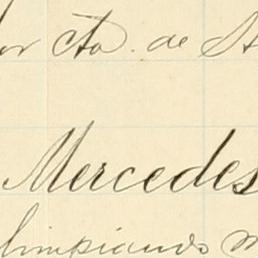 or cta. de
Mercedes
limpiando